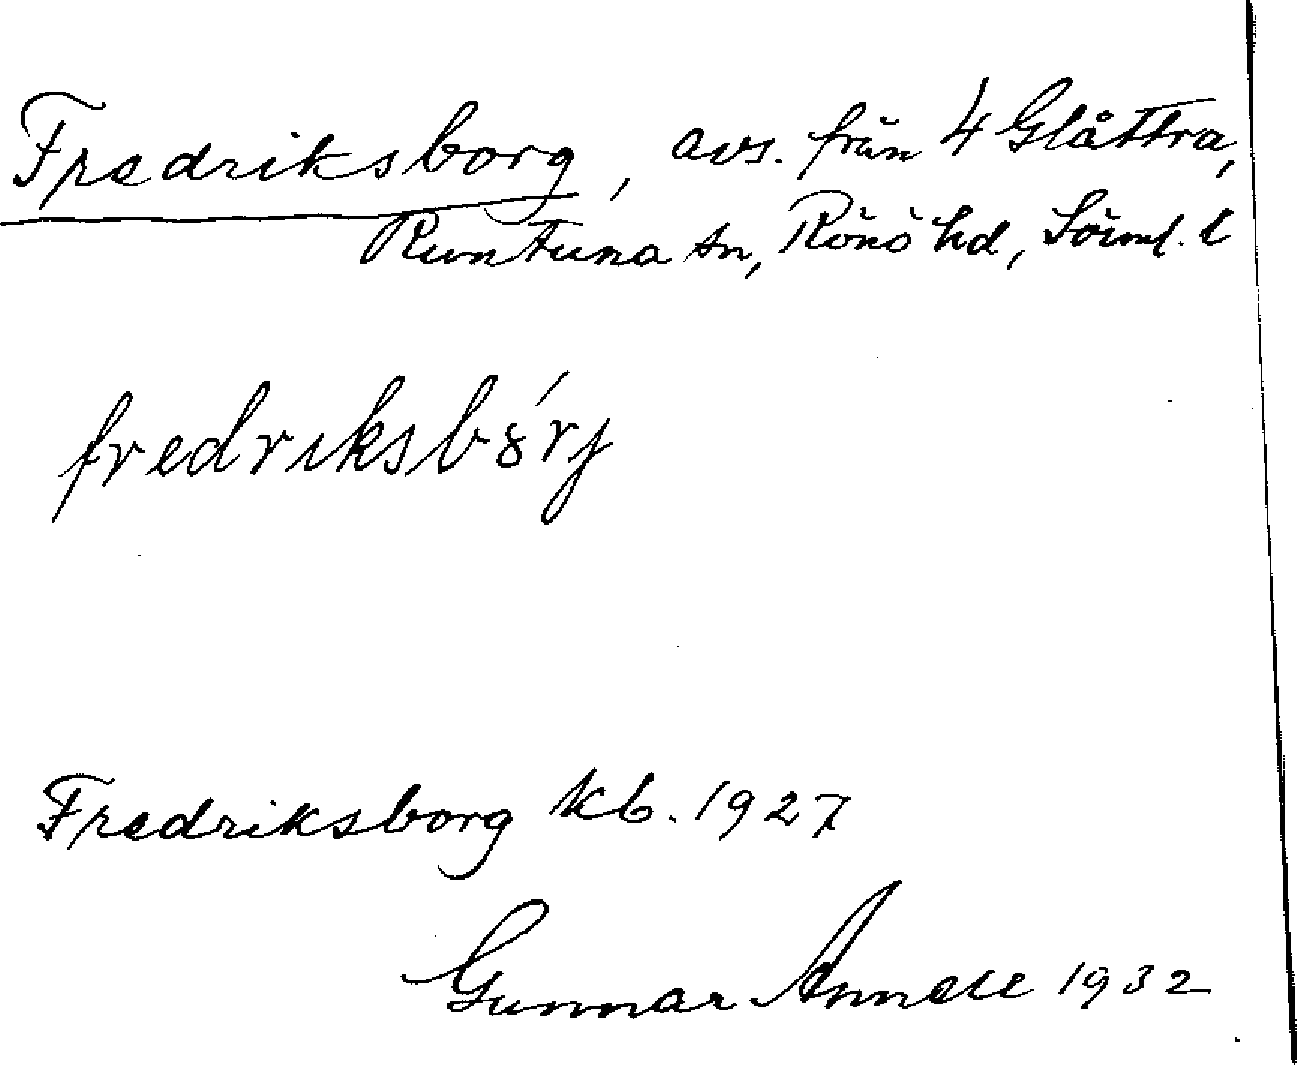 Fredriksborg, avs. från 4 Glåttra,
Runtuna sn, Rönö hd, Söml. l
fredriksbȣ́rj
Fredriksborg kb. 1927
Gunnar Annell 1932